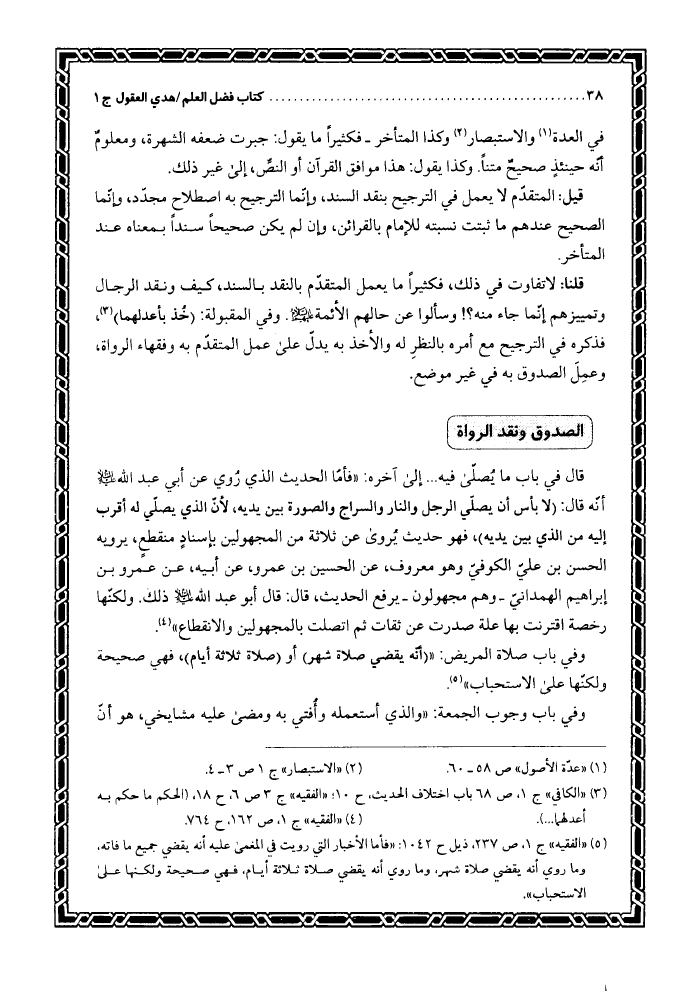 ٣٨ ........................................ كتاب فضل العلم/هدي العقول ج ١
في العدة(١) والاستبصار(٢) وكذا المتأخر ـ فكثيراً ما يقول: جبرت ضعفه الشهرة، ومعلومٌ
أنّه حينئذٍ صحيحٌ متناً. وكذا يقول: هذا موافق القرآن أو النصّ، إلىٰ غير ذلك.
قيل: المتقدّم لا يعمل في الترجيح بنقد السند، وإنّما الترجيح به اصطلاح مجدّد، وإنّما
الصحيح عندهم ما ثبتت نسبته للإمام بالقرائن، وإن لم يكن صحيحاً سنداً بمعناه عند
المتأخر.
قلنا: لاتفاوت في ذلك، فكثيراً ما يعمل المتقدّم بالنقد بالسند، كيف ونقد الرجال
وتمييزهم إنّما جاء منه؟! وسألوا عن حالهم الأئمة عليهم السلام. وفي المقبولة: (خُذ بأعدلهما)(٣)،
فذكره في الترجيح مع أمره بالنظرِ له والأخذ به يدلّ علىٰ عمل المتقدّم به وفقهاء الرواة،
وعمِلَ الصدوق به في غير موضع.
الصدوق ونقد الرواة
قال في باب ما يُصلّىٰ فيه... إلىٰ آخره: «فأمّا الحديث الذي رُوي عن أبي عبد الله عليه السلام
أنّه قال: (لا بأس أن يصلّي الرجل والنار والسراج والصورة بين يديه، لأنّ الذي يصلّي له أقرب
إليه من الذي بين يديه)، فهو حديث يُروىٰ عن ثلاثة من المجهولين بإسنادٍ منقطعٍ، يرويه
الحسن بن عليّ الكوفيّ وهو معروف، عن الحسين بن عمرو، عن أبيه، عن عمرو بن
إبراهيم الهمدانيّ ـ وهم مجهولون ـ يرفع الحديث، قال: قال أبو عبد الله عليه السلام ذلك. ولكنّها
رخصة اقترنت بها علة صدرت عن ثقات ثم اتصلت بالمجهولين والانقطاع»(٤).
وفي باب صلاة المريض: «(أنّه يقضي صلاة شهر) أو (صلاة ثلاثة أيام)، فهي صحيحة
ولكنّها علىٰ الاستحباب»(٥).
وفي باب وجوب الجمعة: «والذي أستعمله وأُفتي به ومضىٰ عليه مشايخي، هو أنّ
(١) «عدّة الأصول» ص ٥٨ ـ ٦٠. (٢) «الاستبصار» ج ١ ص ٣ـ ٤.
(٣) «الكافي» ج ١، ص ٦٨ باب اختلاف الحديث، ح ١٠؛ «الفقيه» ج ٣ ص ٦، ح ١٨، (الحكم ما حكم به
أعدلهما...). (٤) «الفقيه» ج ١، ص ١٦٢، ح ٧٦٤.
(٥) «الفقيه» ج ١، ص ٢٣٧، ذيل ح ١٠٤٢: «فأما الأخبار التي رويت في المغمىٰ عليه أنه يقضي جميع ما فاته،
وما روي أنه يقضي صلاة شهر، وما روي أنه يقضي صلاة ثلاثة أيام، فهي صحيحة ولكنها علىٰ
الاستحباب».